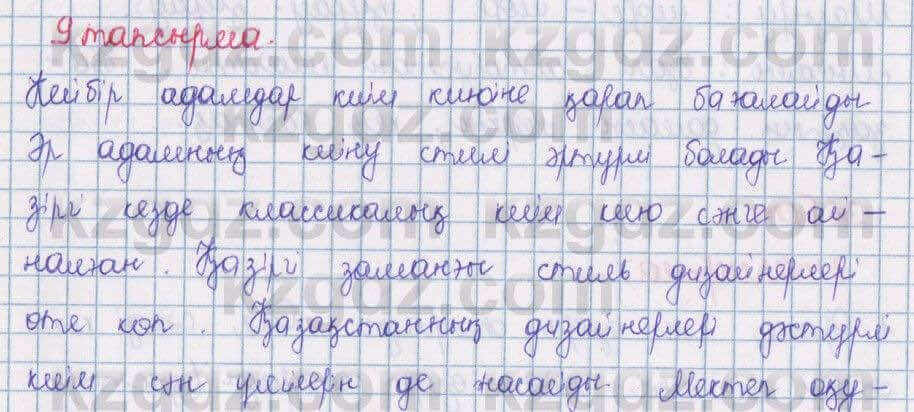 9 тапсырма.
Кейбір адамдар киім киюіне қарап бағалайды
Әр адамның киіну стилі әртүрлі болады Қа-
зіргі кезде классикалық киім кию сәнге ай-
налған. Қазіргі заманғы стиль дизайнерлері
өте көп. Қазақстанның дизайнерлері дәстүрлі
киім сән үлгілерін де жасайды Мектеп оқу-
kzgdz.com